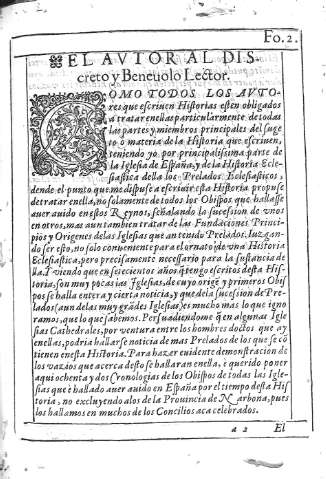 Fo. 2.
EL AVTOR AL DIS-
creto y Beneuolo Lector.
COMO TODOS LOS AVTO-
res que escriuen Historias esten obligados
a tratar en ellas particularmente de todas
las partes y miembros principales del suge
to ò materia de la Historia que escriuen,
teniendo yo por principalissima parte de
la Iglesia de España, y de la Historia Ecle-
siastica della los Prelados Eclesiasticos,
dende el punto que me dispuse a escriuir esta Historia propuse
de tratar en ella, no solamente de todos los Obispos que hallasse
auer auido en estos Reynos, señalando la sucession de vnos
en otros, mas aun tambien tratar de las Fundaciones Princi-
pios y Origenes de las Iglesias que an tenido Prelados. Iuzgan-
do ser esto, no solo conueniente para el ornato de vna Historia
Eclesiastica, pero precisamente necessario para la sustancia de
lla. I viendo que en seiscientos años q tengo escritos desta His-
toria, son muy pocas las Iglesias, de cuyo orige y primeros Obis
pos se halla entera y cierta noticia, y que de la sucesion de Pre-
lados aun de las muy grades Iglesias, es mucho mas lo que igno
ramos, que lo que sabemos. Persuadiendome q en algunas Igle
sias Cathedrales, por ventura entre los hombres doctos que ay
en ellas, podria hallarse noticia de mas Prelados de los que se cõ
tienen en esta Historia. Para hazer euidente demonstracion de
los vazios que acerca desto se hallaran en ella, è querido poner
aqui ochenta y dos Cronologias de los Obispos de todas las Igle-
sias que è hallado auer auido en España por el tiempo desta His
toria, no excluyendo alos de la Prouincia de Narbona, pues
los hallamos en muchos de los Concilios aca celebrados.
a 2 El